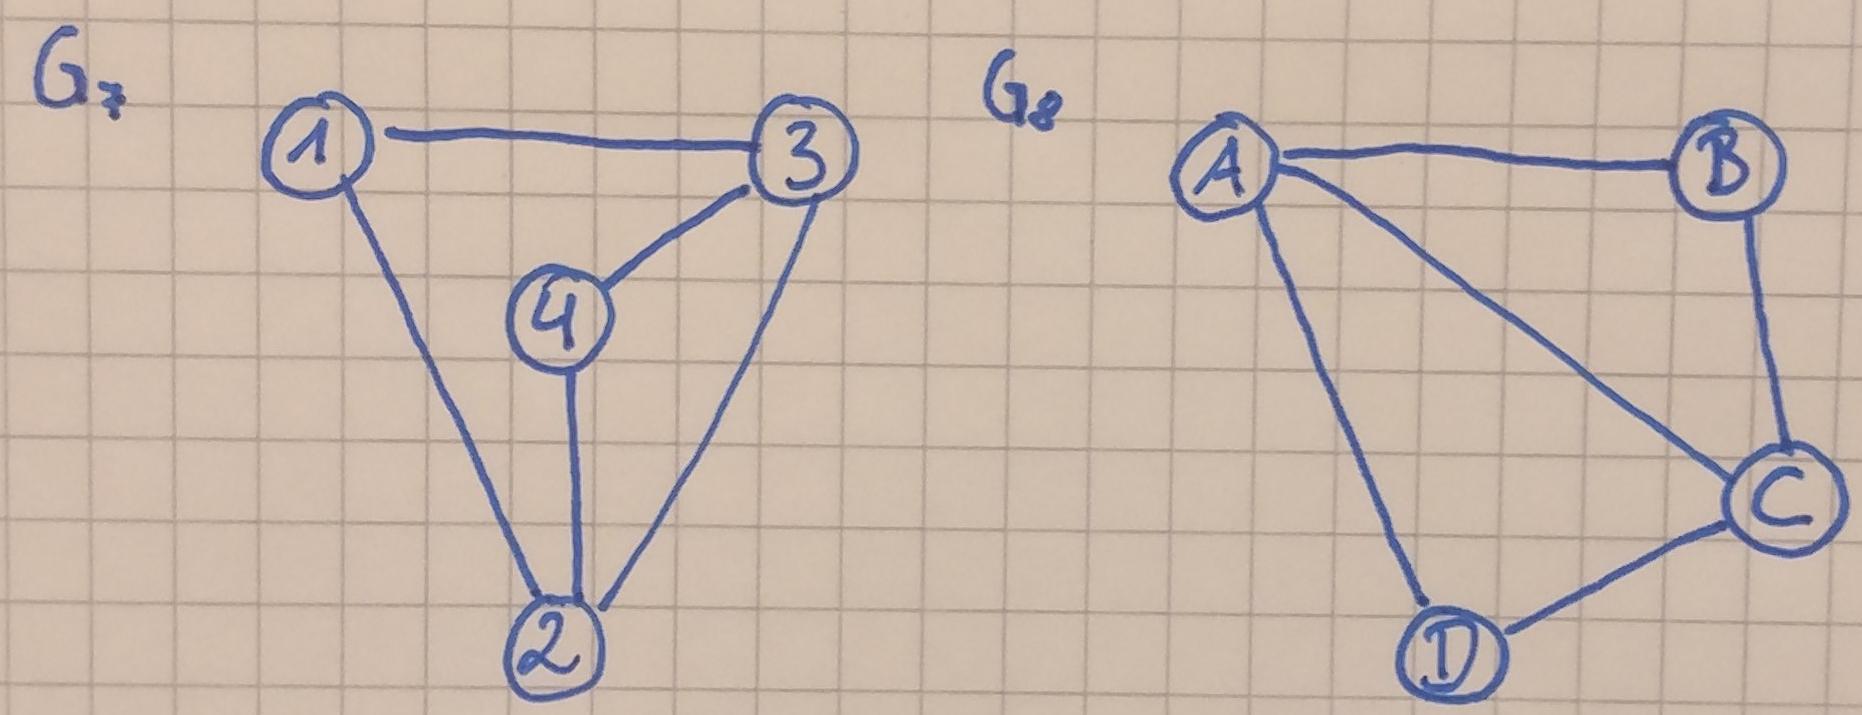 G₇
1 3
4
2
G₈
A B
C
D